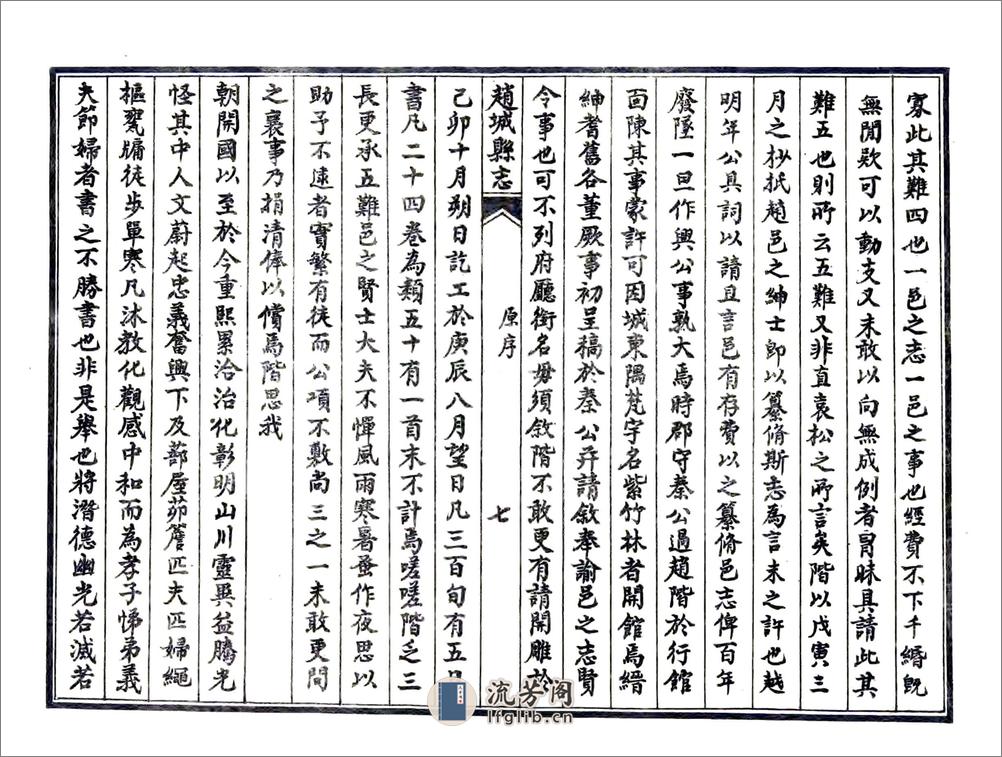 寡此其難四也一邑之志一邑之事也經費不下千緡旣
無閒欵可以動支又未敢以向無成例者冒昧具請此其
難五也則所云五難又非直袁松之所言矣階以戊寅三
月之抄抵趙邑之紳士卽以纂脩斯志為言未之許也越
明年公具詞以請且言邑有存費以之纂脩邑志俾百年
廢墜一旦作興公事孰大焉時郡守秦公過趙階於行館
面陳其事蒙許可因城東隅梵宇名紫竹林者開館焉縉
紳耆舊各董厥事初呈稿於秦公弁請敘奉諭邑之志賢
令事也可不列府廳銜名毋須敘階不敢更有請開雕於
趙城縣志
原序
七
己卯十月朔日訖工於庚辰八月望日凡三百旬有五日
書凡二十四卷為類五十有一首末不計焉嗟嗟階乏三
長更承五難邑之賢士大夫不憚風雨寒暑蚤作夜思以
助予不逮者實繁有徒而公項不敷尚三之一未敢更問
之襄事乃捐清俸以償焉階思我
朝開國以至於今重熙累洽治化彰明山川靈異益騰光
怪其中人文蔚起忠義奮興下及蔀屋茆簷匹夫匹婦繩
樞甕牖徒步單寒凡沐教化觀感中和而為孝子悌弟義
夫節婦者書之不勝書也非是舉也將潛德幽光若滅若
流芳阁
lfglib.cn